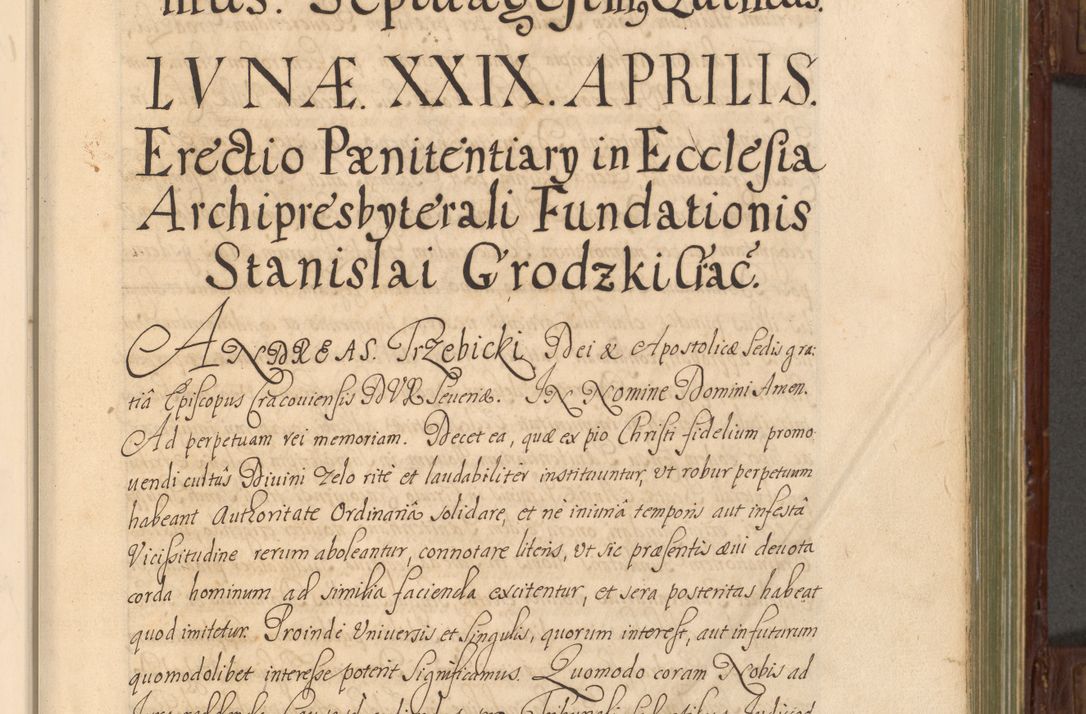 mus. Septuagesimus Quintus.
LVNÆ. XXIX. APRILIS.
Erectio Pænitentiary in Ecclesia
Archipresbyterali Fundationis
Stanislai Grodzki Crac̃.
ANDREAS. Trzebicki Dei & Apostolicæ Sedis gra:
tiâ Episcopus Cracoviensis DVX Severiæ. IN Nomine Domini Amen.
Ad perpetuam rei memoriam. Decet ea, quæ ex pio Christi fidelium promo
uendi cultûs Diuini zelo ritè et laudabilitèr instituuntur, vt robur perpetuum
habeant Authoritate Ordinariâ solidare, et nè iniuriâ temporis aut infestâ
Vicissitudine rerum aboleantur, connotare literis, vt sic præsentis æui deuota
corda hominum ad similia facienda excitentur, et sera posteritas habeat
quod imitetur. Proindè Vniuersis et Singulis, quorum interest, aut in futurum
quomodolibet interesse poterit Significamus. Quomodo coram Nobis ad